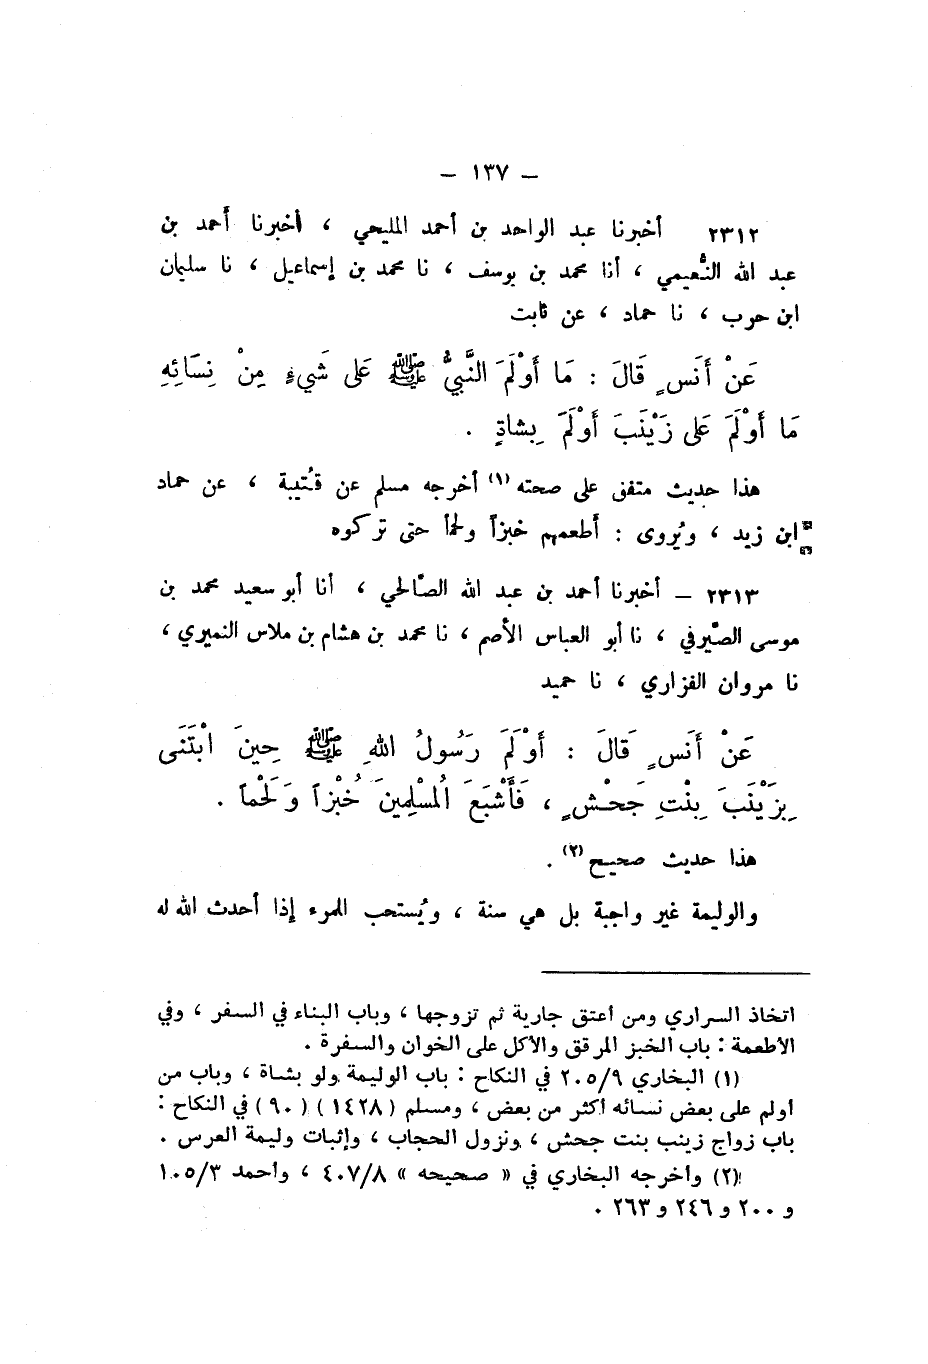 – ١٣٧ –
٢٣١٢ أخبرنا عبد الواحد بن أحمد المليحي ، أخبرنا أحمد بن
عبد الله النُّعيمي ، أنا محمد بن يوسف ، نا محمد بن إسماعيل ، نا سليمان
ابن حرب ، نا حماد ، عن ثابت
عَنْ أَنَسٍ قَالَ : مَا أَوْلَمَ النَّبِيُّ ﷺ عَلَى شَيءٍ مِنْ نِسَائِهِ
مَا أَوْلَمَ عَلَى زَيْنَبَ أَوْلَمَ بِشاةٍ .
هذا حديث متفق على صحته (١) أخرجه مسلم عن قُتيبة ، عن حماد
ابن زيد ، ويُروى : أطعمهم خبزاً ولحماً حتى تركوه
٢٣١٣ – أخبرنا أحمد بن عبد الله الصّالحي ، أنا أبو سعيد محمد بن
موسى الصّيرفي ، نا أبو العباس الأصم ، نا محمد بن هشام بن ملاس النميري ،
نا مروان الفزاري ، نا حميد
عَنْ أَنَسٍ قَالَ : أَوْلَمَ رَسُولُ اللهِ ﷺ حِينَ ابْتَنَى
بِزَيْنَبَ بِنْتِ جَحْشٍ ، فَأَشْبَعَ الْمُسْلِمِينَ خُبْزاً وَلَحْماً .
هذا حديث صحيح (٢) .
والوليمة غير واجبة بل هي سنة ، ويُستحب للمرء إذا أحدث الله له
اتخاذ السراري ومن أعتق جارية ثم تزوجها ، وباب البناء في السفر ، وفي
الأطعمة : باب الخبز المرقق والأكل على الخوان والسفرة .
(١) البخاري ٢٠٥/٩ في النكاح : باب الوليمة ولو بشاة ، وباب من
أولم على بعض نسائه أكثر من بعض ، ومسلم ( ١٤٢٨ ) ( ٩٠ ) في النكاح :
باب زواج زينب بنت جحش ، ونزول الحجاب ، وإثبات وليمة العرس .
(٢) وأخرجه البخاري في « صحيحه » ٤٠٧/٨ ، وأحمد ١٠٥/٣
و ٢٠٠ و ٢٤٦ و ٢٦٣ .